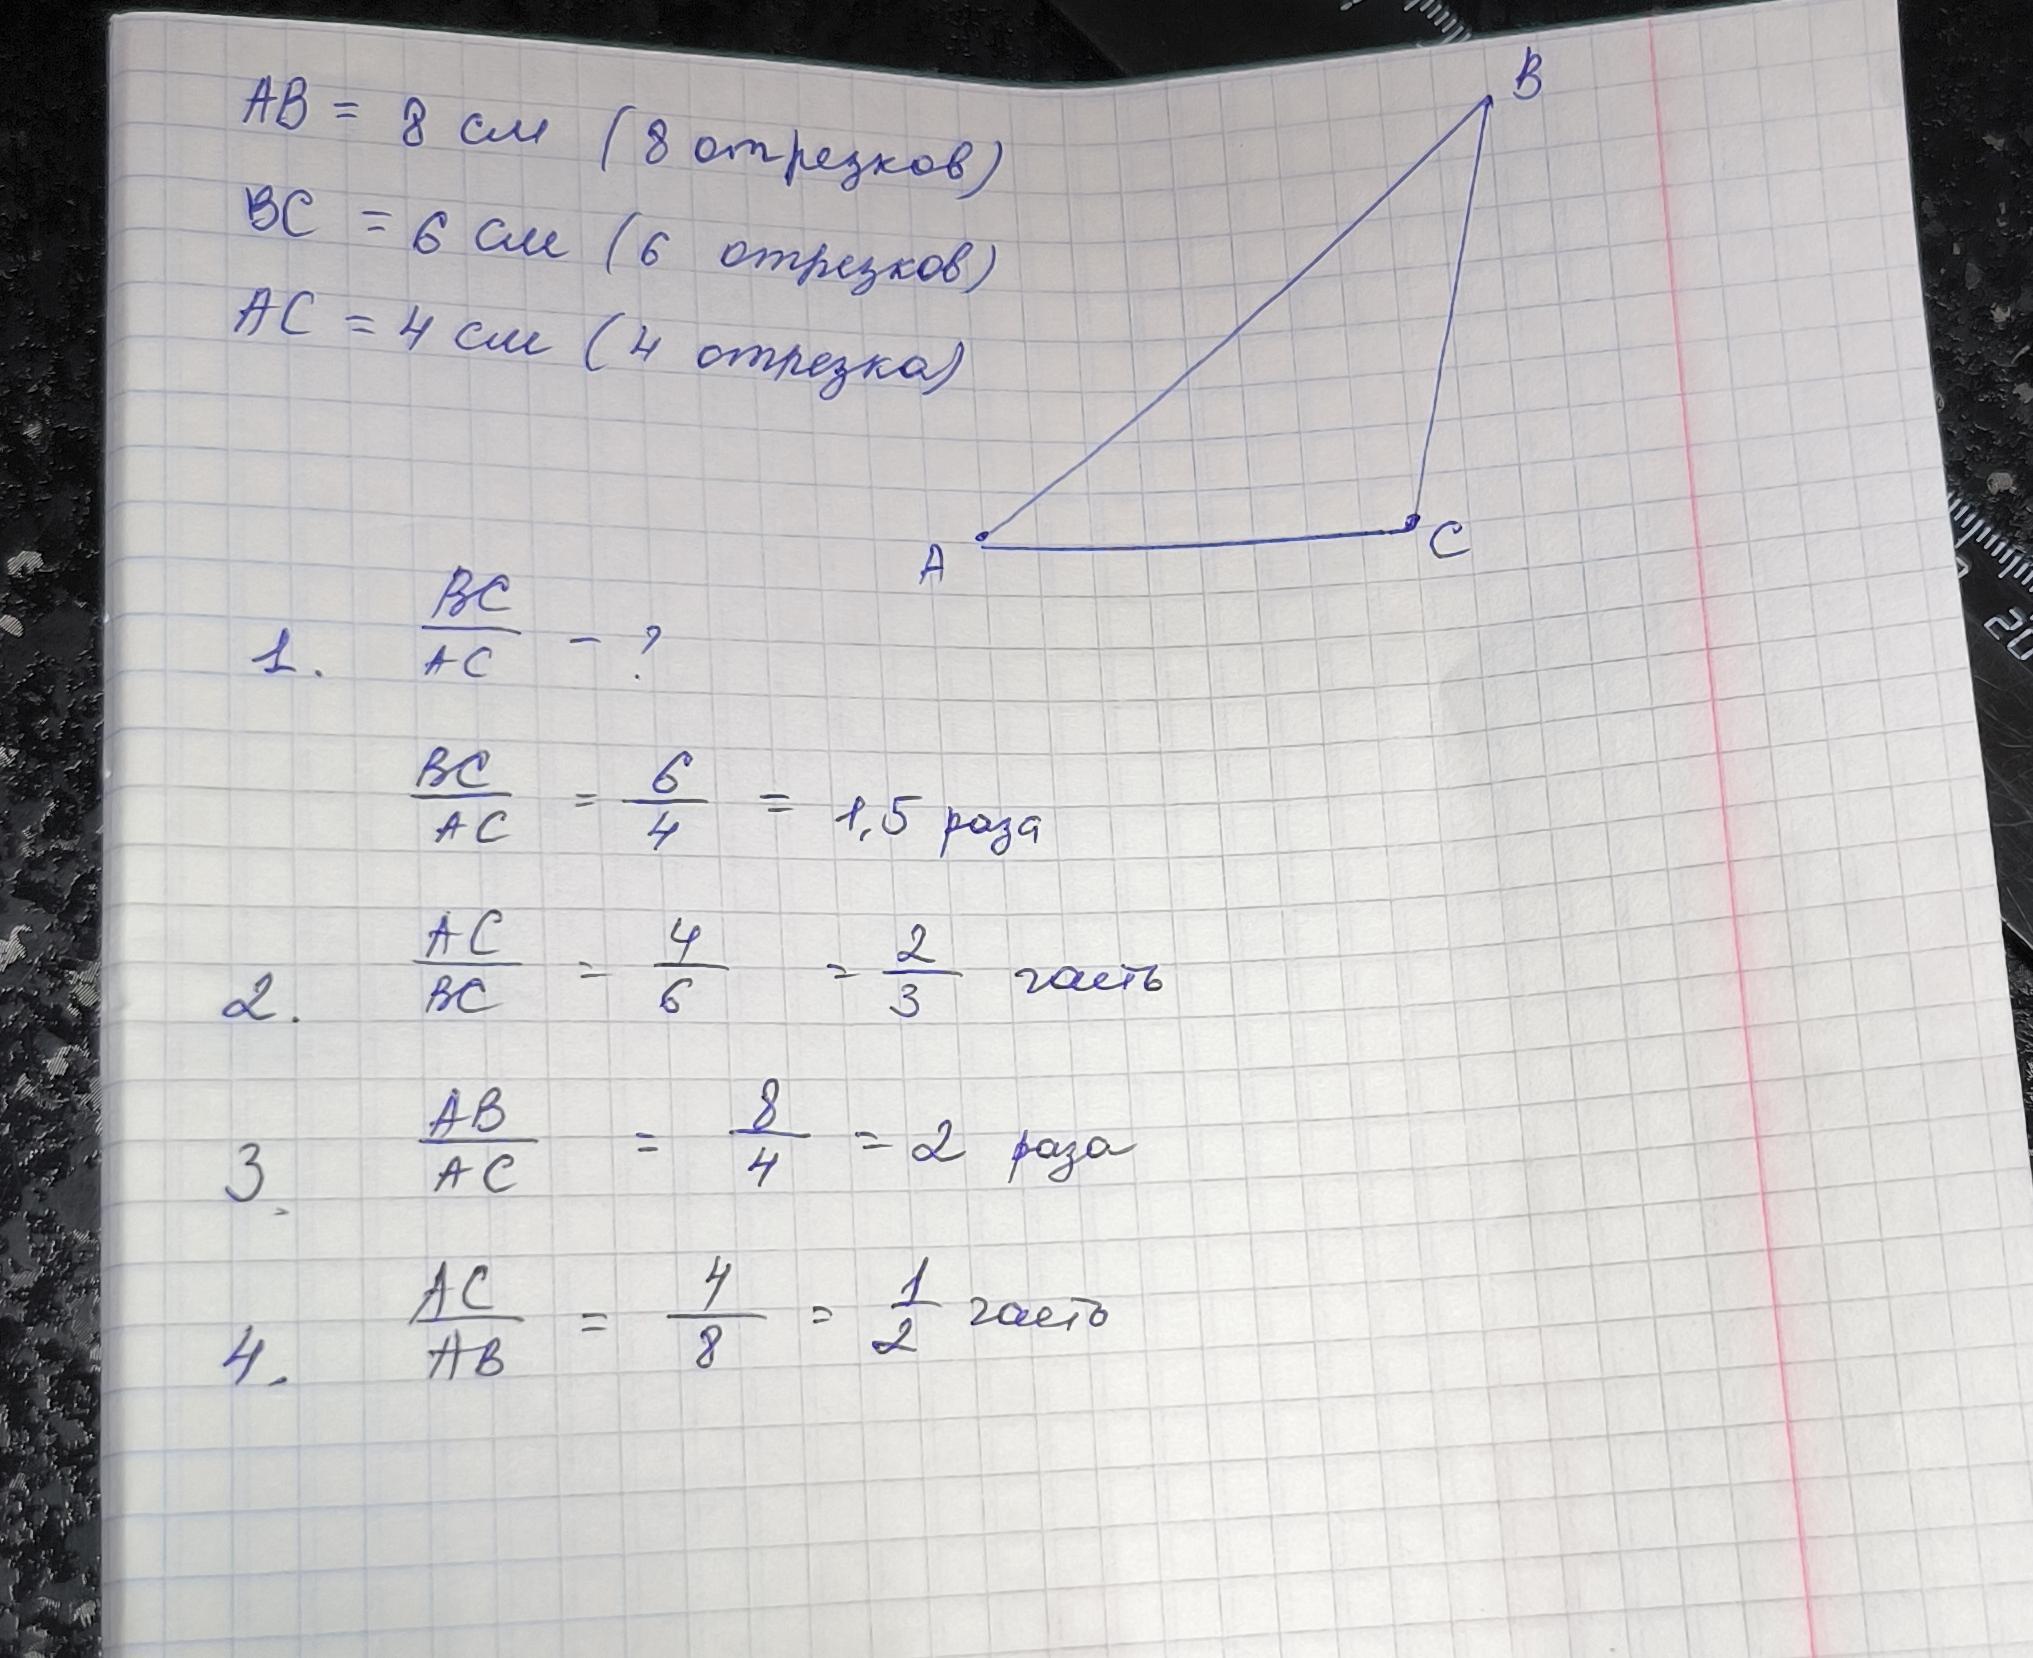 AB = 8 см (8 отрезков)
BC = 6 см (6 отрезков)
AC = 4 см (4 отрезка)
B
A
C
1. BC/AC - ?
BC/AC = 6/4 = 1,5 раза
2. AC/BC = 4/6 = 2/3 часть
3. AB/AC = 8/4 = 2 раза
4. AC/AB = 4/8 = 1/2 часть
20